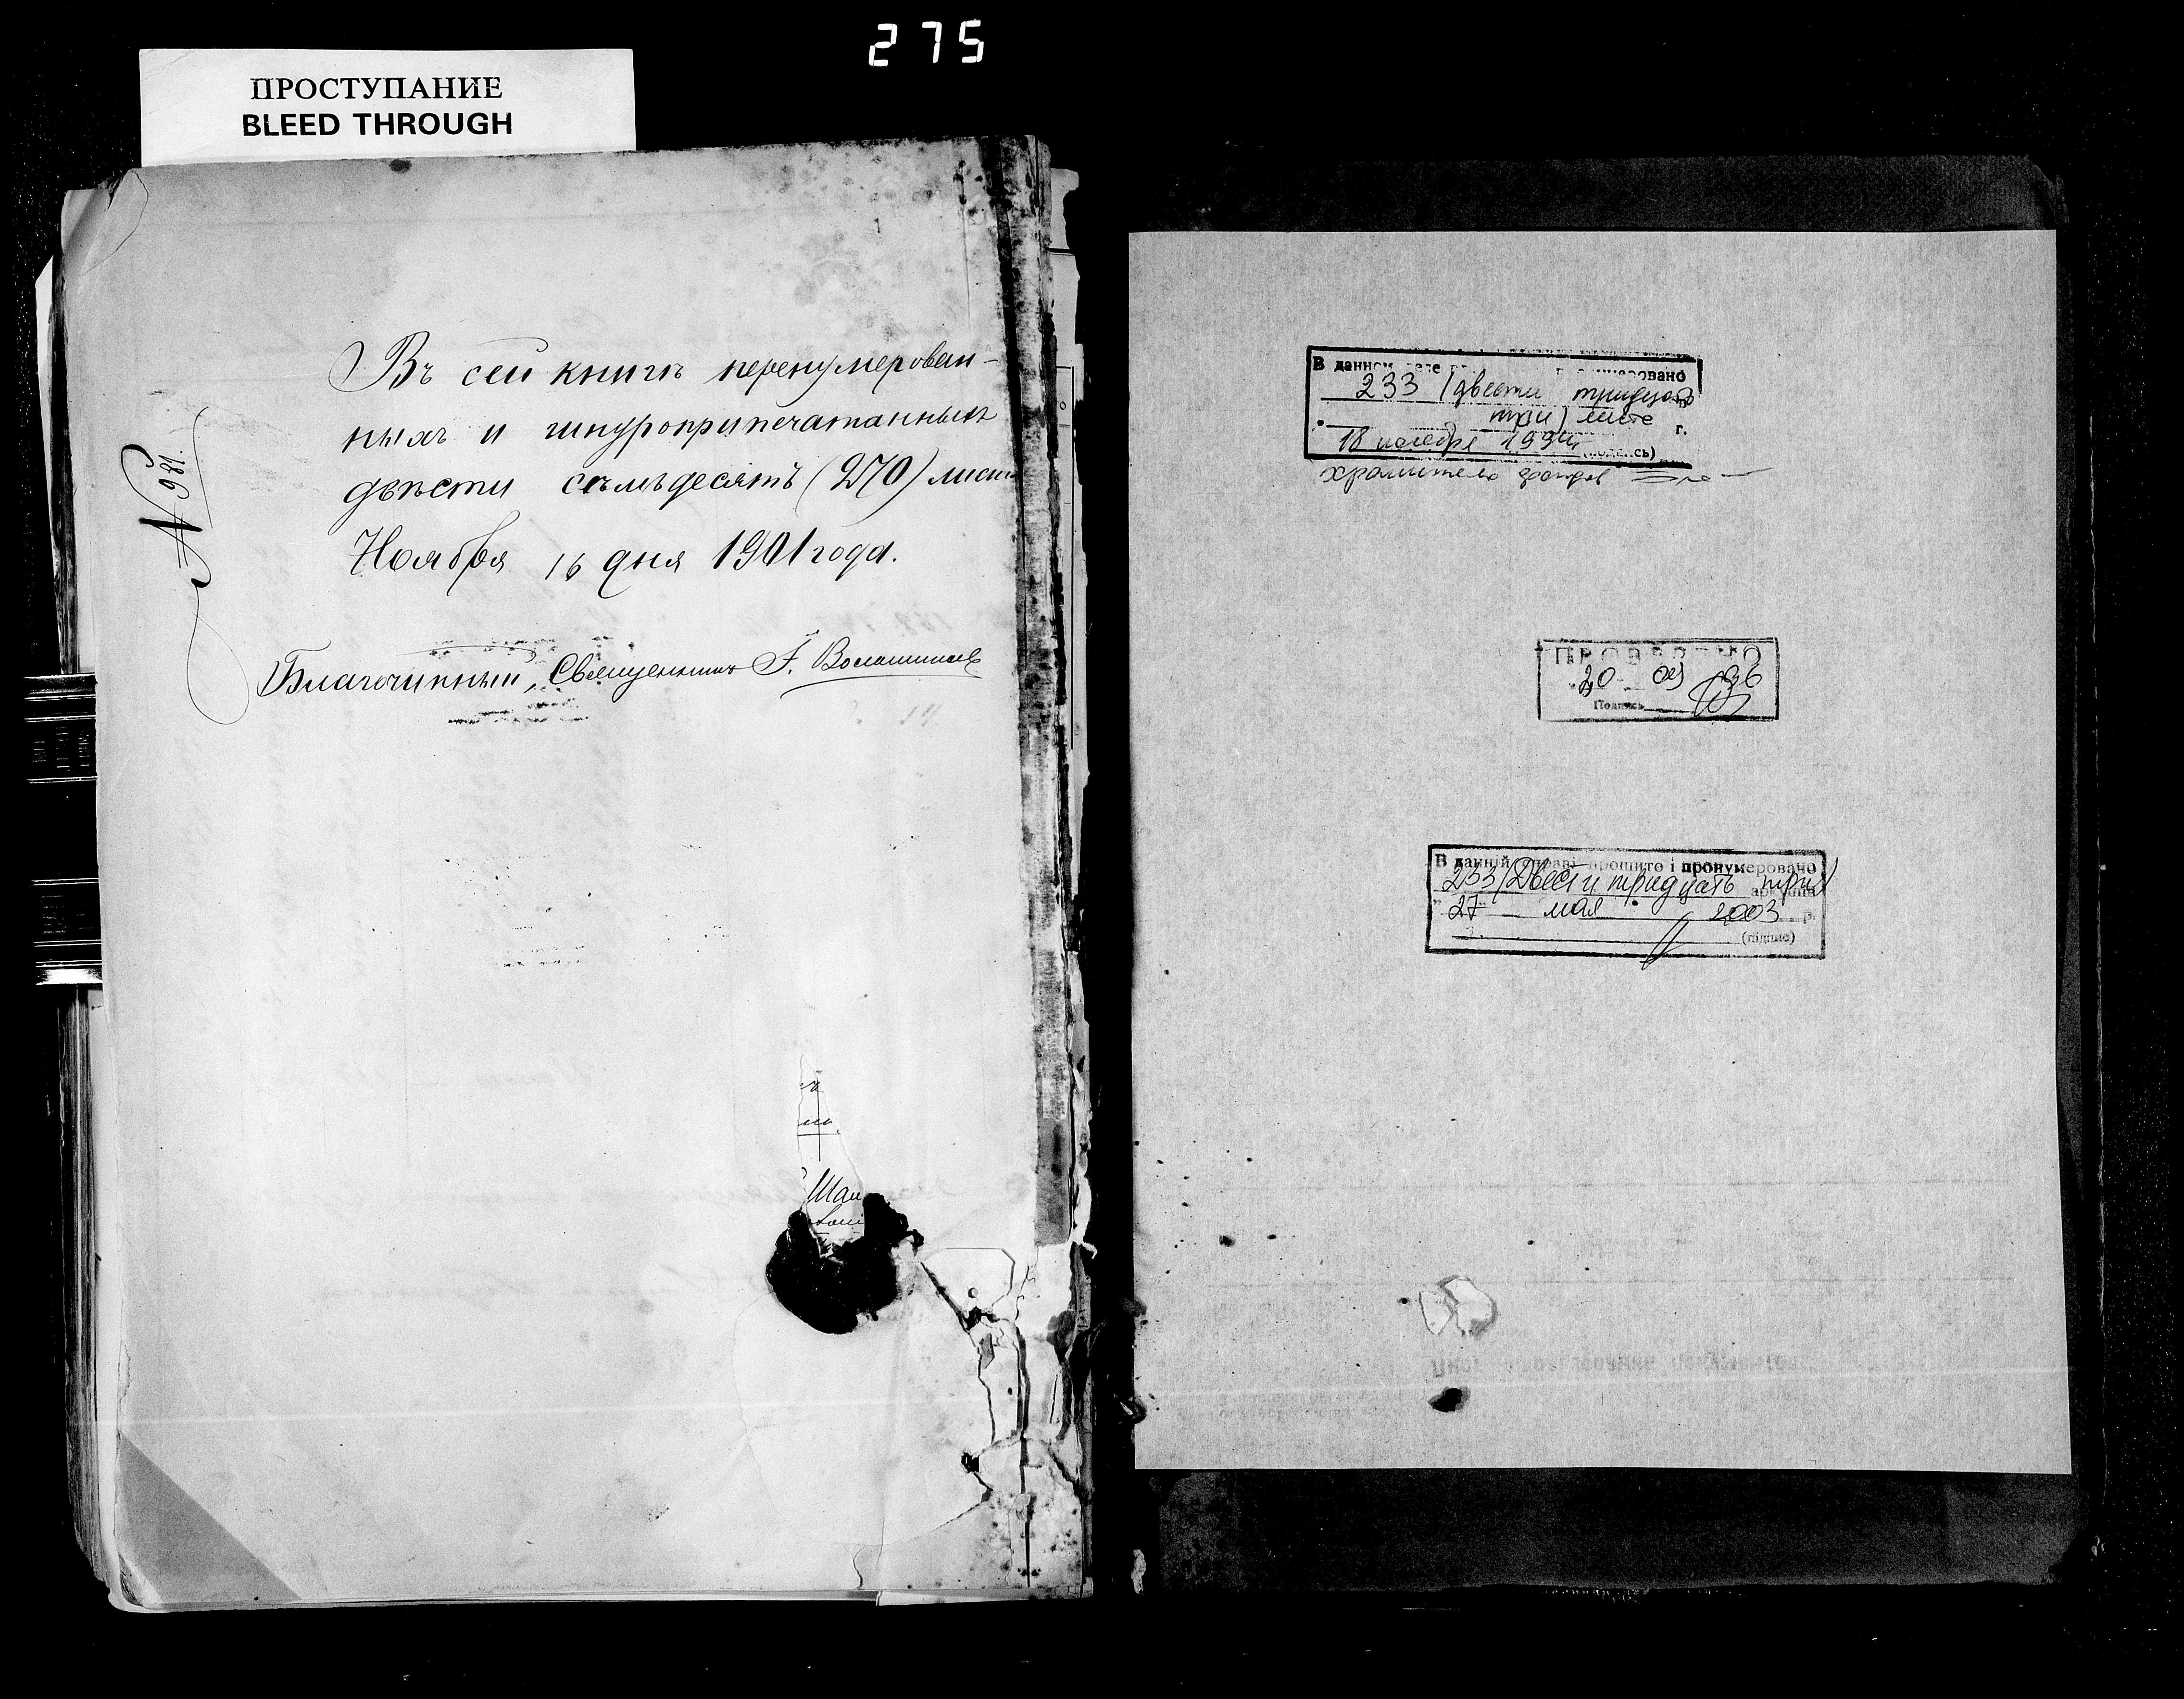 275
ПРОСТУПАНИЕ
BLEED THROUGH
№ 981.
Въ сей книгѣ перенумерован-
ныхъ и шнуроприпечатанныхъ
двѣсти семьдесятъ (270) лист
Ноября 16 дня 1901 года.
Благочинный, Священникъ Г.
Шап
В данном деле пронумеровано
233 (двести тридцать
три) листа
г.
18 ноября 1994
(подпись)
хранитель фондов
ПРОВЕРЕНО
20 09 96
Подпись
В данній справі прошито і пронумеровано
233 (Двести тридцать три)
аркушів
" 27 " мая 2003 р.
(підпис)